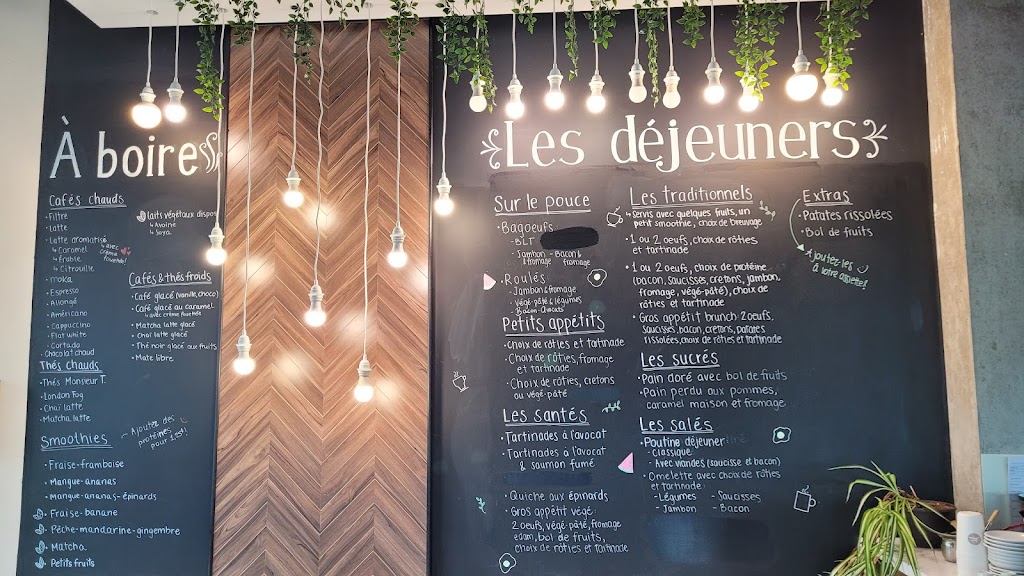 À boire
Cafés chauds
· Filtre
· Latte
· Latte aromatisé
↳ Caramel
↳ Érable
↳ Citrouille
↳ avec
crème
fouettée!
· Moka
· Espresso
· Allongé
· Américano
· Cappuccino
· Flat white
· Cortado
· Chocolat chaud
Laits végétaux dispon
↳ Avoine
↳ Soya
Cafés & thés froids
· Café glacé (vanille, choco)
· Café glacé au caramel
↳ avec crème fouettée
· Matcha latte glacé
· Chaï latte glacé
· Thé noir glacé aux fruits
· Maté libre
Thés chauds
· Thés Monsieur T.
· London Fog
· Chaï latte
· Matcha latte
Smoothies
Ajoutez des
protéines
pour
· Fraise-framboise
· Mangue-ananas
· mangue-ananas-épinards
· Fraise-banane
· Pêche-mandarine-gingembre
· Matcha
· Petits fruits
Les déjeuners
Sur le pouce
· Bagoeufs
- BLT
- Jambon fromage
- Bacon & fromage
· Roulés
- Jambon & fromage
- Végé-pâté & légumes
- Bacon-avocats
Petits appétits
· Choix de rôties et tartinade
· Choix de rôties, fromage
et tartinade
· Choix de rôties, cretons
ou végé-pâté
Les santés
· Tartinades à l'avocat
· Tartinades à l'avocat
& saumon fumé
· Quiche aux épinards
· Gros appétit végé:
2 oeufs, végé-pâté, fromage
edam, bol de fruits,
choix de rôties et tartinade
Les traditionnels
↳ Servis avec quelques fruits, un
petit smoothie, choix de breuvage
· 1 ou 2 oeufs, choix de rôties
et tartinade
· 1 ou 2 oeufs, choix de protéine
(bacon, saucisses, cretons, jambon,
fromage, végé-pâté), choix de
rôties et tartinade
· Gros appétit brunch: 2 oeufs,
saucisses, bacon, cretons, patates
rissolées, choix de rôties et tartinade
Les sucrés
· Pain doré avec bol de fruits
· Pain perdu aux pommes,
caramel maison et fromage
Les salés
· Poutine déjeuner
- Classique
- Avec viandes (saucisse et bacon)
· Omelette avec choix de rôties
et tartinade:
- Légumes - Saucisses
- Jambon - Bacon
Extras
· Patates rissolées
· Bol de fruits
Ajoutez-les
à votre assiette!